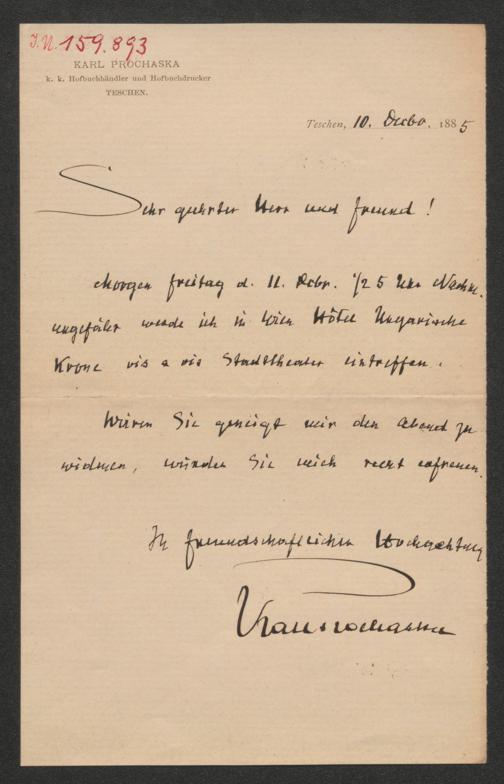 I.N. 159.893
KARL PROCHASKA
k. k. Hofbuchhändler und Hofbuchdrucker
TESCHEN.
Teschen, 10. Decbr. 1885
Sehr geehrter Herr und Freund!
Morgen Freitag d. 11. Decbr. 1/2 5 Uhr Nachm.
ungefähr werde ich in Wien Hôtel Ungarische
Krone vis a vis Stadttheater eintreffen.
Wären Sie geneigt mir den Abend zu
widmen, würden Sie mich recht erfreuen.
In freundschaftlicher Hochachtung
Karl Prochaska